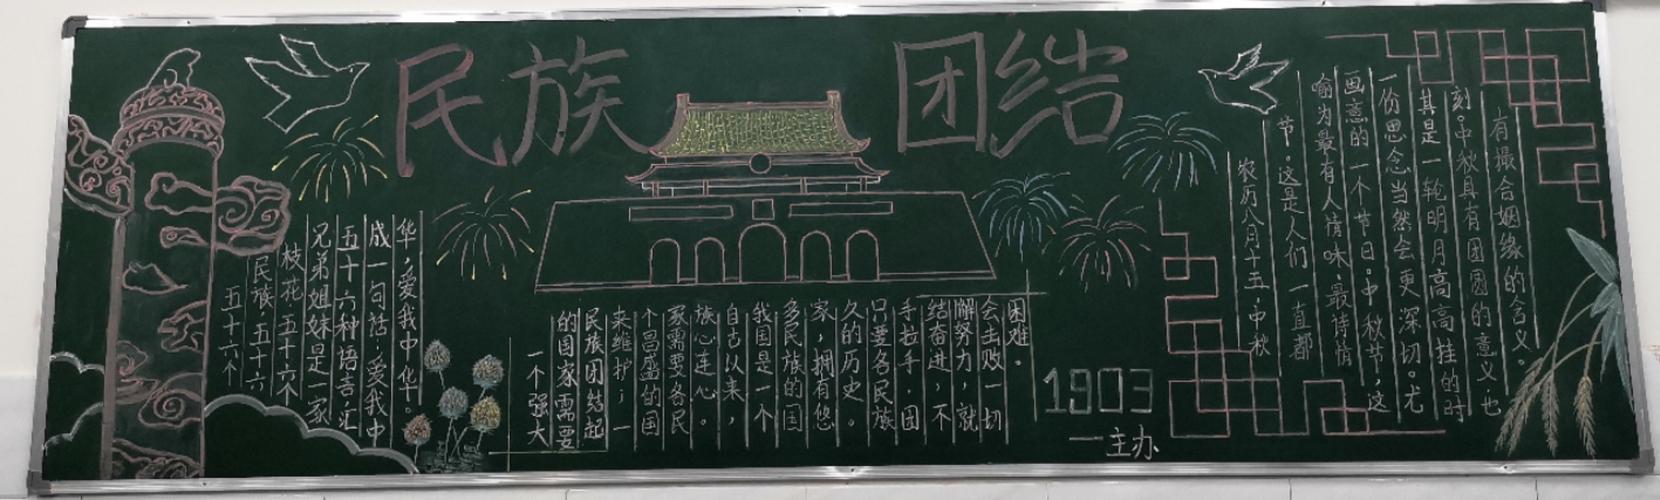 民族 团结
五十六个
民族,五十六
枝花,五十六个
兄弟姐妹是一家
五十六种语言汇
成一句话,爱我中
华,爱我中华。
一个强大
的国家需要
民族团结起
来维护;一
个昌盛的国
家需要各民
族心连心。
自古以来,
我国是一个
多民族的国
家,拥有悠
久的历史。
只要各民族
手拉手,团
结奋进,不
懈努力,就
会击败一切
困难。
1903
一主办
农历八月十五,中秋
节。这是人们一直都
喻为最有人情味、最诗情
画意的一个节日。中秋节,这
一份思念当然会更深切。尤
其是一轮明月高高挂的时
刻。中秋具有团圆的意义,也
有撮合姻缘的含义。